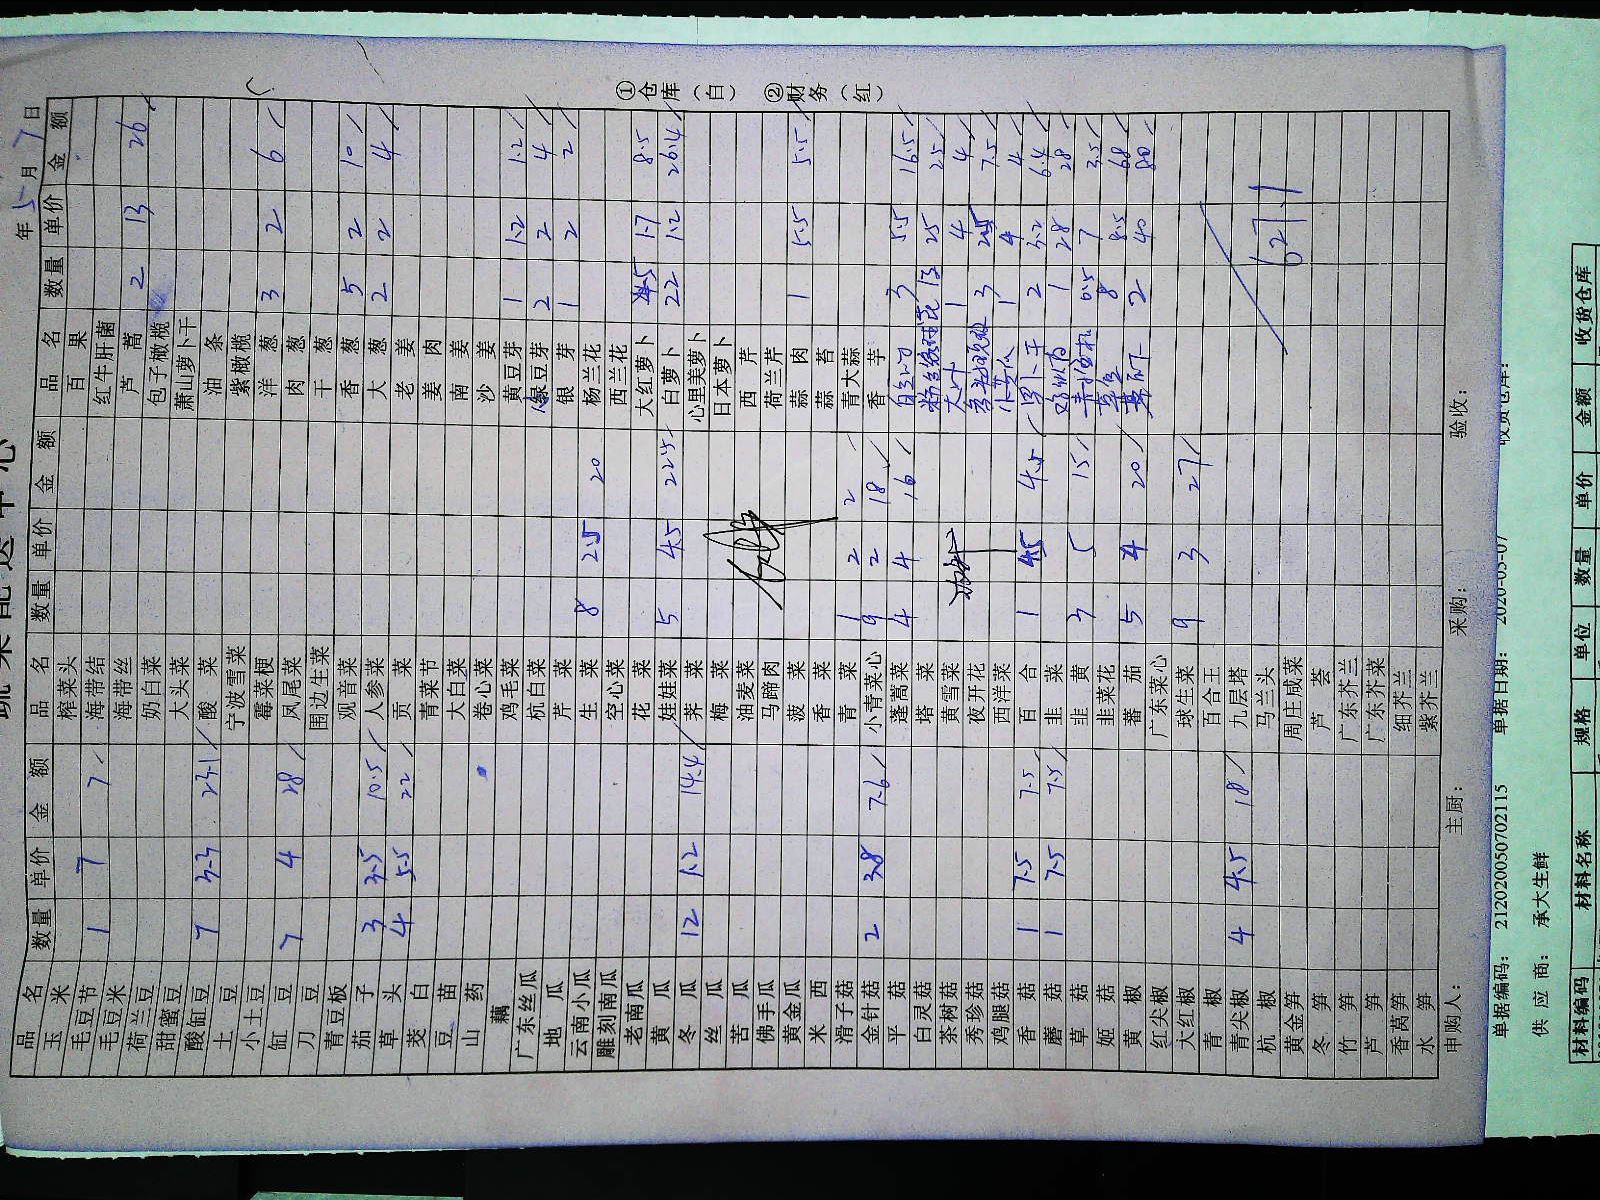 蔬菜配送中心
年5月7日
品名 数量 单价 金额 品名 数量 单价 金额 品名 数量 单价 金额
玉米 榨菜头 百果
毛豆节 1 7 7 海带结 红牛肝菌
毛豆米 海带丝 芦蒿 2 13 26
荷兰豆 奶白菜 包子橄榄
甜蜜豆 大头菜 萧山萝卜干
酸缸豆 7 3.3 23.1 酸菜 油条
土豆 宁波雪菜 紫橄榄
小土豆 霉菜梗 洋葱 3 2 6
缸豆 7 4 28 凤尾菜 肉葱
刀豆 围边生菜 干葱
青豆板 观音菜 香葱 5 2 10
茄子 3 3.5 10.5 人参菜 大葱 2 2 4
草头 4 5.5 22 贡菜 老姜
茭白 青菜节 姜肉
豆苗 大白菜 南姜
山药 卷心菜 沙姜
藕 鸡毛菜 黄豆芽 1 1.2 1.2
广东丝瓜 杭白菜 绿豆芽 2 2 4
地瓜 芹菜 银芽 1 2 2
云南小瓜 生菜 8 2.5 20 杨兰花
雕刻南瓜 空心菜 西兰花
老南瓜 花菜 大红萝卜 5 1.7 8.5
黄瓜 娃娃菜 5 4.5 22.5 白萝卜 22 1.2 26.4
冬瓜 12 1.2 14.4 荠菜 心里美萝卜
丝瓜 梅菜 日本萝卜
苦瓜 油麦菜 西芹
佛手瓜 马蹄肉 荷兰芹
黄金瓜 菠菜 蒜肉 1 5.5 5.5
米西 香菜 蒜苔
滑子菇 青菜 1 2 2 青大蒜
金针菇 2 3.8 7.6 小青菜心 9 2 18 香芋
平菇 蓬蒿菜 4 4 16 3 5.5 16.5
白灵菇 塔菜 25 25
茶树菇 黄雪菜 1 4 4
秀珍菇 夜开花 3 2.5 7.5
鸡腿菇 西洋菜 小黄瓜 1 4 4
香菇 1 7.5 7.5 百合 1 4.5 4.5 萝卜干 2 3.2 6.4
蘑菇 1 7.5 7.5 韭菜 1 28 28
草菇 韭黄 3 5 15 0.5 7 3.5
姬菇 韭菜花 8 8.5 68
黄椒 蕃茄 5 4 20 2 40 80
红尖椒 广东菜心
大红椒 球生菜 9 3 27
青椒 百合王
青尖椒 4 4.5 18 九层塔
杭椒 马兰头 627.1
黄金笋 周庄咸菜
冬笋 芦荟
竹笋 广东芥兰
芦笋 广东芥菜
香莴笋 细芥兰
水笋 紫芥兰
申购人： 主厨： 采购： 验收：
①仓库（白） ②财务（红）
单据编码： 212020050702115 单据日期： 2020-05-07 收货仓库：
供应商： 承大生鲜
材料编码 材料名称 规格 单位 数量 单价 金额 收货仓库